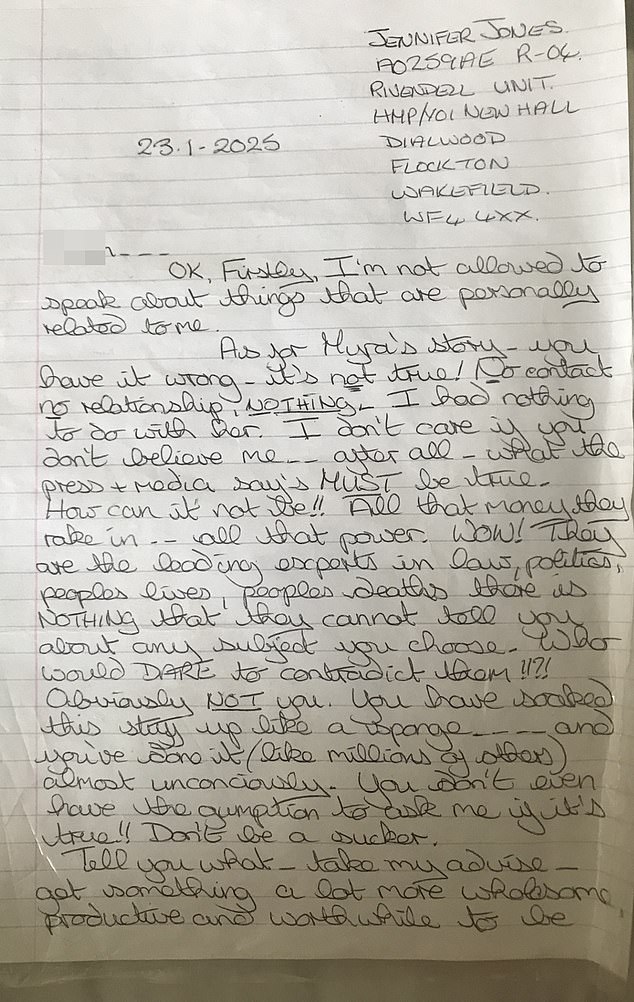 JENNIFER JONES.
A0259AE R-04.
RIVENDELL UNIT.
HMP/YOI NEW HALL
23.1-2025
DIALWOOD
FLOCKTON
WAKEFIELD.
WF4 4XX.
OK, Firstly, I'm not allowed to
speak about things that are personally
related to me.
As for Myra's story - you
have it wrong - it's not true! No contact
no relationship, NOTHING. I had nothing
to do with her. I don't care if you
don't believe me -- after all - what the
press + media say's MUST be true -
How can it not be!! All that money they
rake in -- all that power. WOW! They
are the leading experts in law, politics,
peoples lives, peoples deaths there is
NOTHING that they cannot tell you
about any subject you choose - Who
would DARE to contradict them!!?!
Obviously NOT you. You have soaked
this story up like a sponge ---- and
you've done it (like millions of others)
almost unconciously. You don't even
have the gumption to ask me if it's
true!! Don't be a sucker.
Tell you what - take my advise -
get something a lot more wholesome,
productive and worthwhile to be